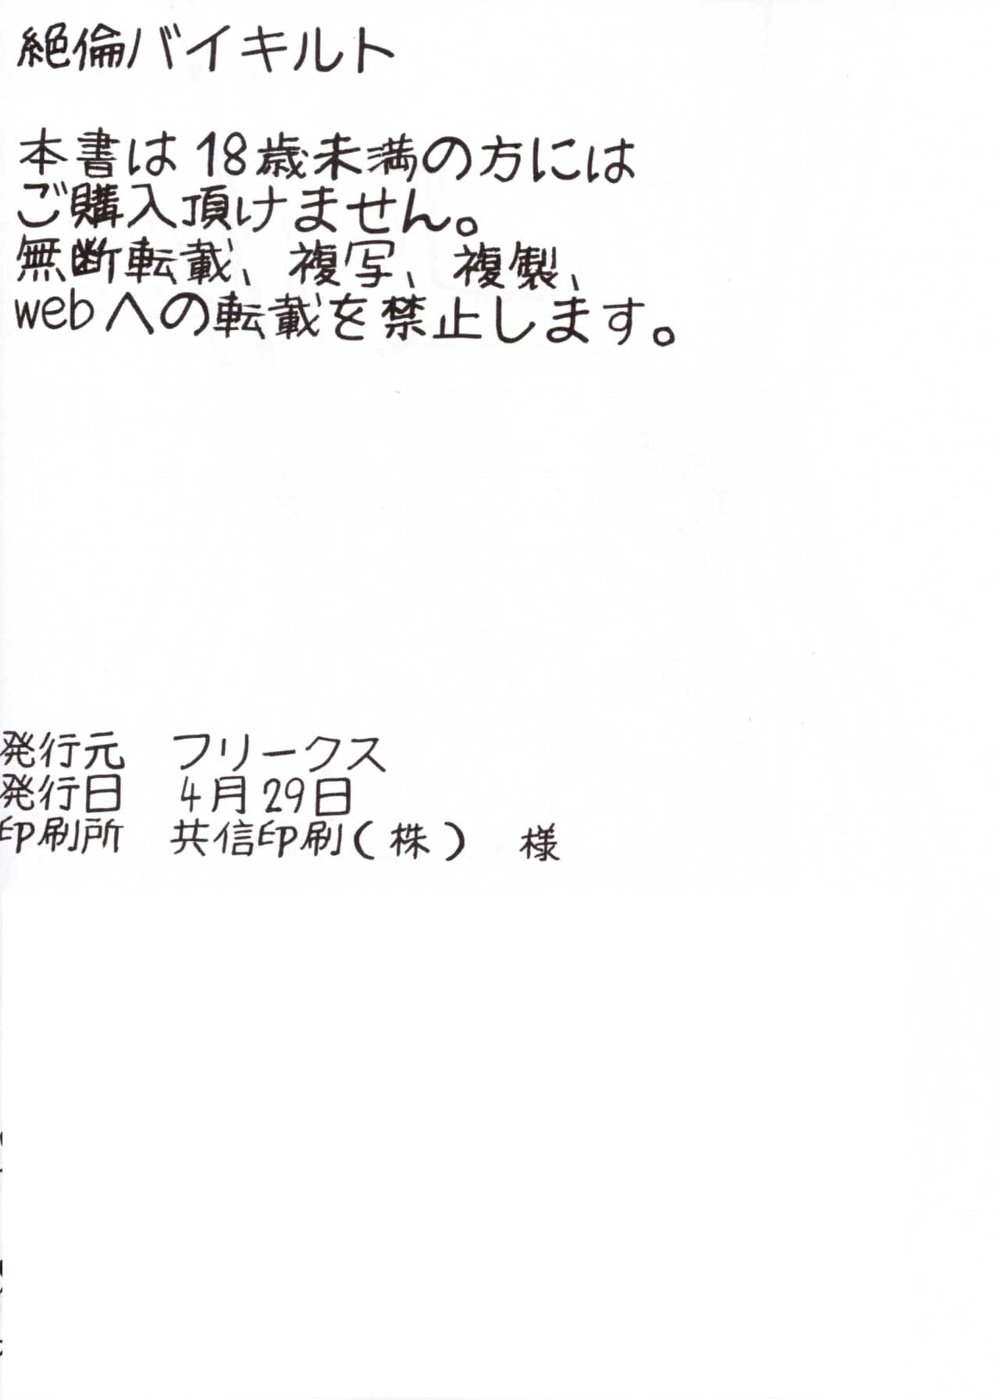 絶倫バイキルト
本書は18歳未満の方には
ご購入頂けません。
無断転載、複写、複製、
webへの転載を禁止します。
発行元 フリークス
発行日 4月29日
印刷所 共信印刷(株) 様